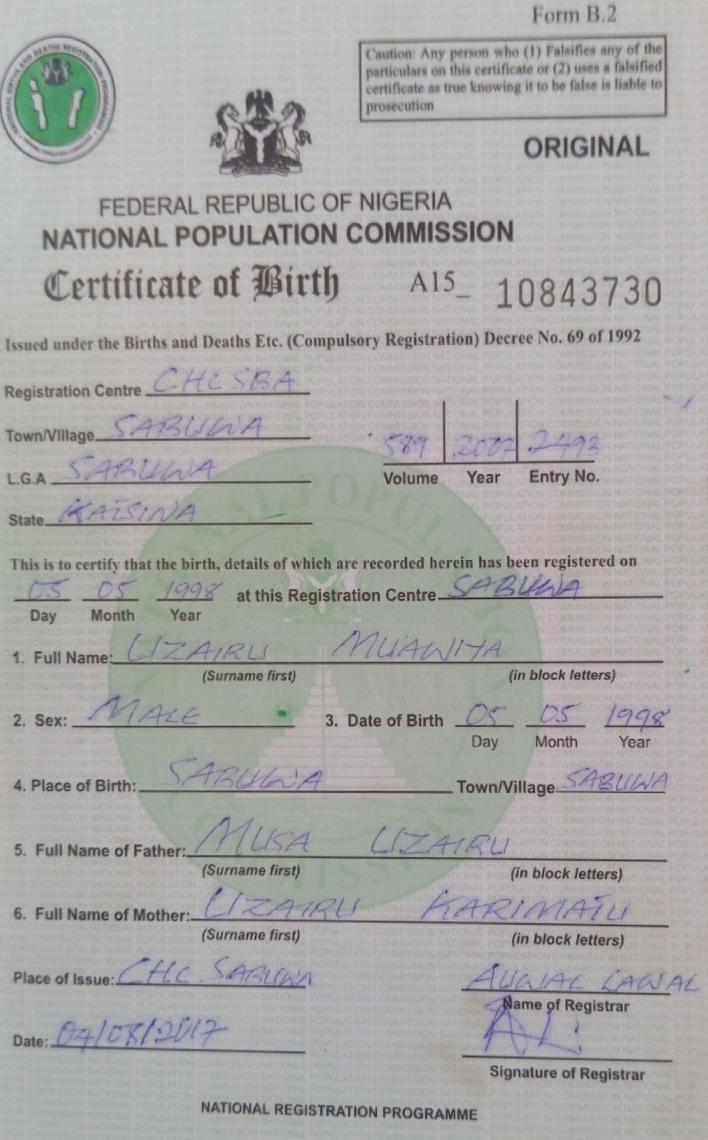 Form B.2
NATIONAL BIRTHS AND DEATHS REGISTRATION PROGRAMME
Caution: Any person who (1) Falsifies any of the
particulars on this certificate or (2) uses a falsified
certificate as true knowing it to be false is liable to
prosecution
ORIGINAL
FEDERAL REPUBLIC OF NIGERIA
NATIONAL POPULATION COMMISSION
Certificate of Birth A15_ 10843730
Issued under the Births and Deaths Etc. (Compulsory Registration) Decree No. 69 of 1992
Registration Centre CHC SBA
Town/Village SABUWA
589 2007 2493
L.G.A SABUWA
Volume Year Entry No.
State KATSINA
This is to certify that the birth, details of which are recorded herein has been registered on
05 05 1998 at this Registration Centre SABUWA
Day Month Year
1. Full Name: UZAIRU MUAWIYA
(Surname first) (in block letters)
2. Sex: MALE 3. Date of Birth 05 05 1998
Day Month Year
4. Place of Birth: SABUWA Town/Village SABUWA
5. Full Name of Father: MUSA UZAIRU
(Surname first) (in block letters)
6. Full Name of Mother: UZAIRU KARIMATU
(Surname first) (in block letters)
Place of Issue: CHC SABUWA AUWAL LAWAL
Name of Registrar
Date: 04/08/2017
Signature of Registrar
NATIONAL REGISTRATION PROGRAMME